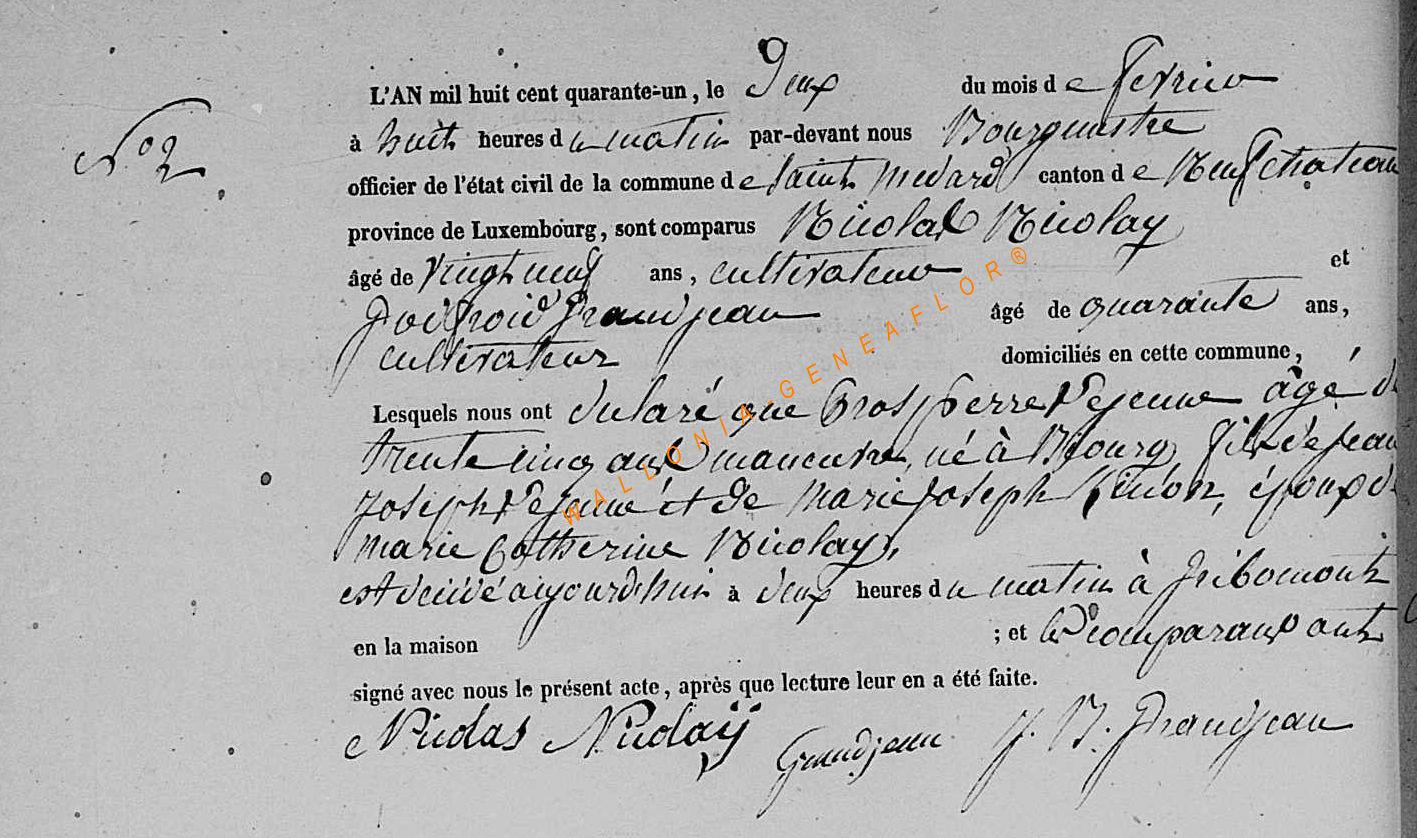 N° 2
L'AN mil huit cent quarante-un, le Deux du mois de fevrier
à huit heures du matin par-devant nous Bourgmestre
officier de l'état civil de la commune de Saint Medard canton de Neufchateau
province de Luxembourg, sont comparus Nicolas Nicolay
âgé de vingt neuf ans, cultivateur et
Godfroid Grandjean âgé de quarante ans,
cultivateur domiciliés en cette commune,
Lesquels nous ont declaré que Prosperre Lejeune âgé de
trente cinq ans manœuvre, né à Bourg fils de Jean
Joseph Lejeune et de Marie Joseph époux de
Marie Catherine Nicolay,
est décédé aujourd'hui à deux heures du matin à Gribomont
en la maison ; et les comparans ont
signé avec nous le présent acte, après que lecture leur en a été faite.
Nicolas Nicolaÿ Grandjean J. B. Grandjean
WALLONIA-GENEAFLOR®